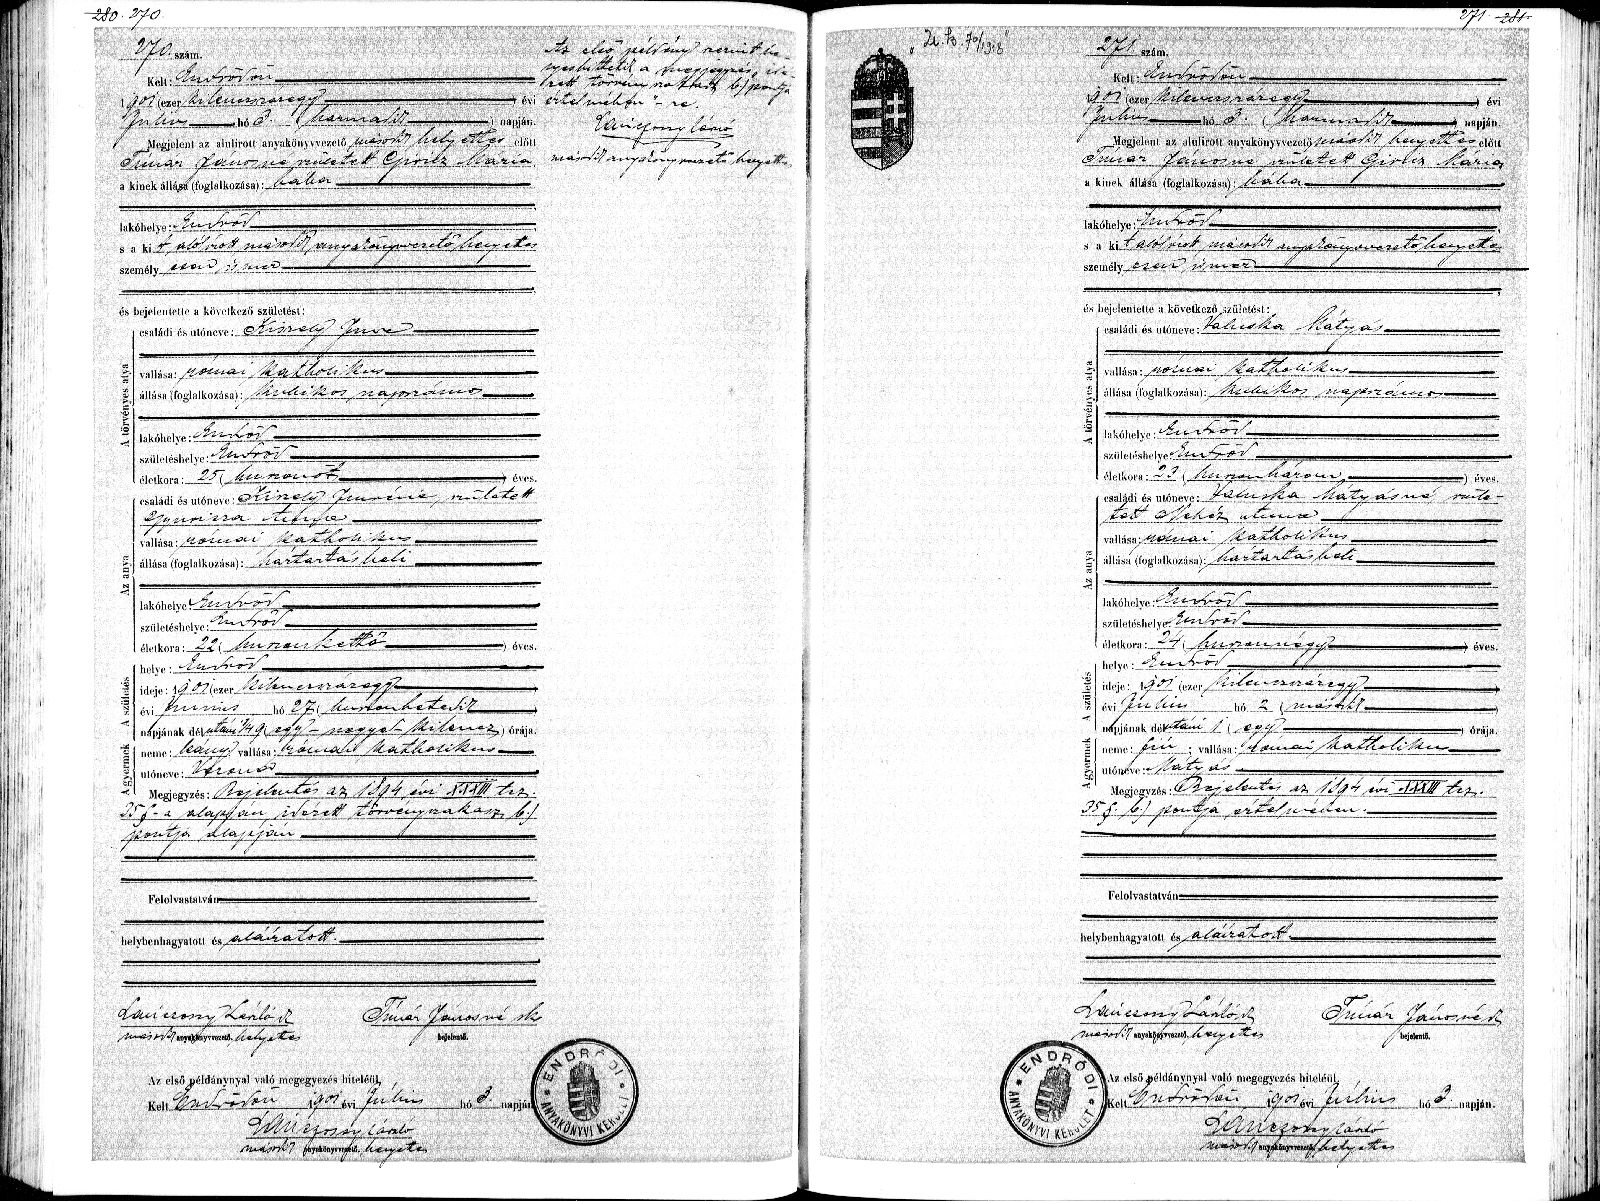 280. 270.
270. szám.
Kelt: Endrődön
1901 (ezer kilenczszázegy) évi
Julius hó 3. (harmadik) napján.
Megjelent az alulirott anyakönyvvezető második helyettes előtt
Timár Jánosné született Mária
a kinek állása (foglalkozása): bába
lakóhelye: Endrőd
s a kit alólirott második anyakönyvvezető helyettes
személyesen ismer
és bejelentette a következő születést:
A törvényes atya
családi és utóneve: Kiszely Imre
vallása: római katholikus
állása (foglalkozása): kubikos napszámos
lakóhelye: Endrőd
születéshelye: Endrőd
életkora: 25 (huszonöt) éves.
Az anya
családi és utóneve: Kiszely Imréné, született
Gyuricza Anna
vallása: római katholikus
állása (foglalkozása): háztartásbeli
lakóhelye: Endrőd
születéshelye: Endrőd
életkora: 22 (huszonkettő) éves.
A születés
helye: Endrőd
ideje: 1901 (ezer kilenczszázegy)
évi Junius hó 27 (huszonhetedik)
napjának délutáni 1/4 9 (egy-negyed kilencz) órája.
A gyermek
neme: leány vallása: római katholikus
utóneve: Verona
Megjegyzés: Bejelentés az 1894 évi XXXIII tcz.
35 §-a alapján idézett törvényszakasz b.)
pontja alapján
Felolvastatván
helybenhagyatott és aláiratott.
Lánczony László sk Timár Jánosné sk
második anyakönyvvezető helyettes bejelentő.
Az első példánynyal való megegyezés hiteléül,
Kelt Endrődön 1901 évi Július hó 3. napján
Lánczony László
második anyakönyvvezető helyettes
ENDRŐDI
ANYAKÖNYVI KERÜLET
Az első példány szerint
a megjegyzés,
törvényszakasz b.) pontja
értelmében"-re.
Lánczony László
második anyakönyvvezető helyettes.
271. 281.
271. szám.
Kelt: Endrődön
1901 (ezer kilenczszázegy) évi
Julius hó 3. (harmadik) napján.
Megjelent az alulirott anyakönyvvezető második helyettes előtt
Timár Jánosné született Mária
a kinek állása (foglalkozása): bába
lakóhelye: Endrőd
s a kit alólirott második anyakönyvvezető helyettes
személyesen ismer
és bejelentette a következő születést:
A törvényes atya
családi és utóneve: Valuska Mátyás
vallása: római katholikus
állása (foglalkozása): kubikos napszámos
lakóhelye: Endrőd
születéshelye: Endrőd
életkora: 23 (huszonhárom) éves.
Az anya
családi és utóneve: Valuska Mátyásné, szüle-
tett Nehéz
vallása: római katholikus
állása (foglalkozása): háztartásbeli
lakóhelye: Endrőd
születéshelye: Endrőd
életkora: 24 (huszonnégy) éves.
A születés
helye: Endrőd
ideje: 1901 (ezer kilenczszázegy)
évi Július hó 2 (második)
napjának délutáni 1 (egy) órája.
A gyermek
neme: fiú; vallása: római katholikus
utóneve: Mátyás
Megjegyzés: Bejelentés az 1894 évi XXXIII tcz.
35 §. b.) pontja értelmében.
Felolvastatván
helybenhagyatott és aláiratott.
Lánczony László sk Timár Jánosné sk
második anyakönyvvezető, helyettes bejelentő.
Az első példánynyal való megegyezés hiteléül,
Kelt Endrődön 1901 évi Július hó 3. napján.
Lánczony László
második anyakönyvvezető helyettes
ENDRŐDI
ANYAKÖNYVI KERÜLET